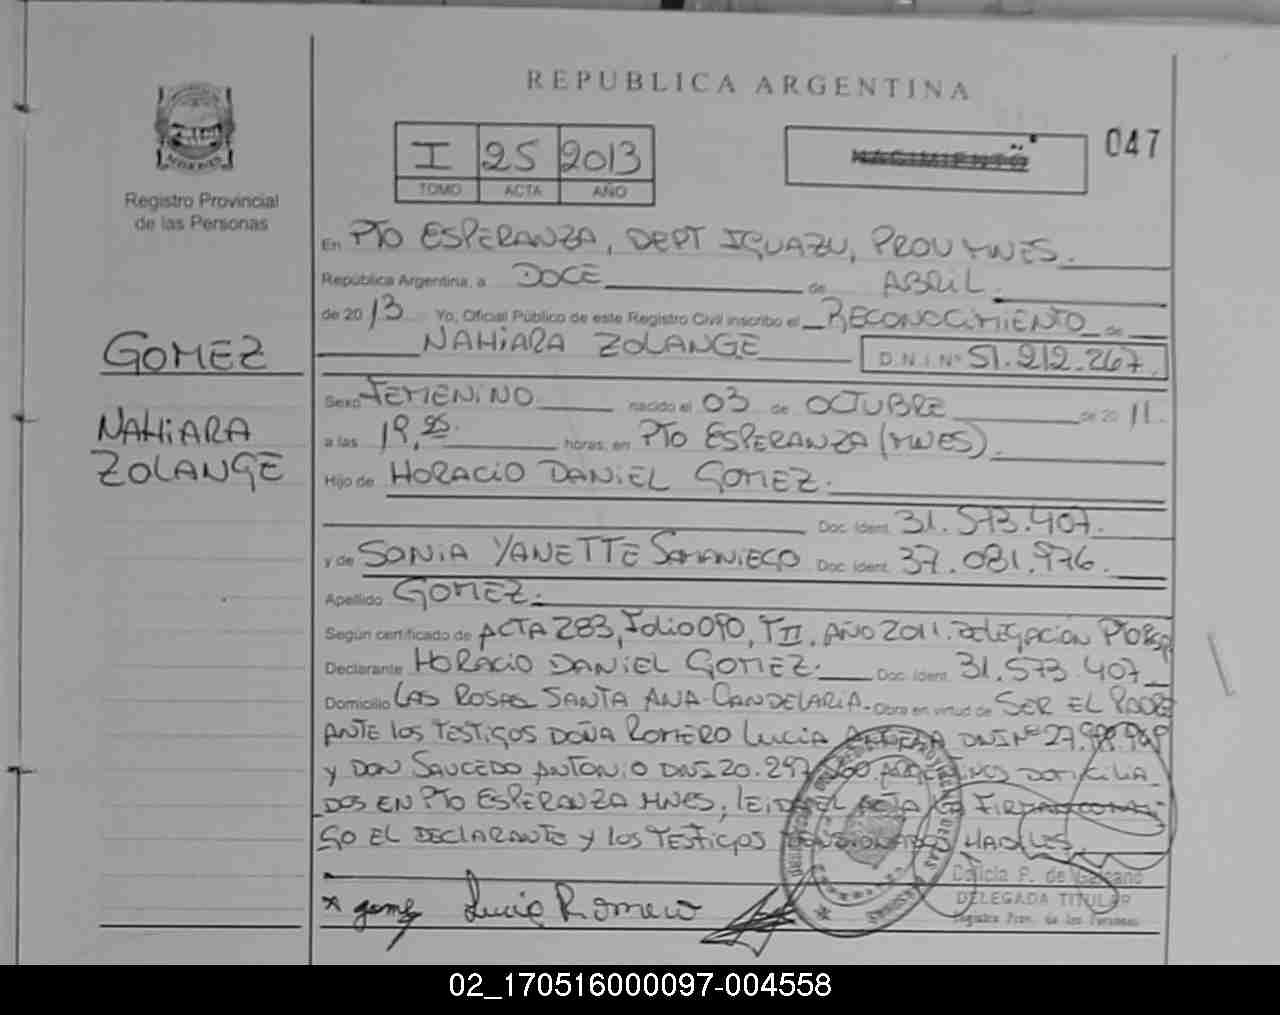 REPUBLICA ARGENTINA
I 25 2013
TOMO ACTA AÑO
NACIMIENTO
047
Registro Provincial
de las Personas
En PTO ESPERANZA, DEPT IGUAZU, PROV MNES.
República Argentina, a DOCE de ABRIL.
de 2013 Yo, Oficial Público de este Registro Civil inscribo el RECONOCIMIENTO de
NAHIARA ZOLANGE D.N.I. Nº 51.212.267.
GOMEZ
NAHIARA
ZOLANGE
Sexo FEMENINO nacido el 03 de OCTUBRE de 2011.
a las 19, horas, en PTO ESPERANZA (MNES).
Hijo de HORACIO DANIEL GOMEZ.
Doc. Ident. 31.573.407.
y de SONIA YANETTE SAMANIEGO Doc. Ident. 37.081.976.
Apellido GOMEZ.
Según certificado de ACTA 283, Folio 090, T II, AÑO 2011. DELEGACION PTO ESP
Declarante HORACIO DANIEL GOMEZ. Doc. Ident. 31.573.407
Domicilio LAS ROSAS SANTA ANA-CANDELARIA. Obra en virtud de SER EL PADRE
ANTE LOS TESTIGOS DOÑA ROMERO LUCIA DNI Nº
Y DON SAUCEDO ANTONIO DNI 20.297. ARGENTINOS DOMICILIA
DOS EN PTO ESPERANZA MNES, LEIDA EL ACTA FIRMAN CONMI
GO EL DECLARANTE Y LOS TESTIGOS HABILES.
Lucia Romero
P. de
DELEGADA TITULAR
Registro Prov. de las Personas
02_170516000097-004558